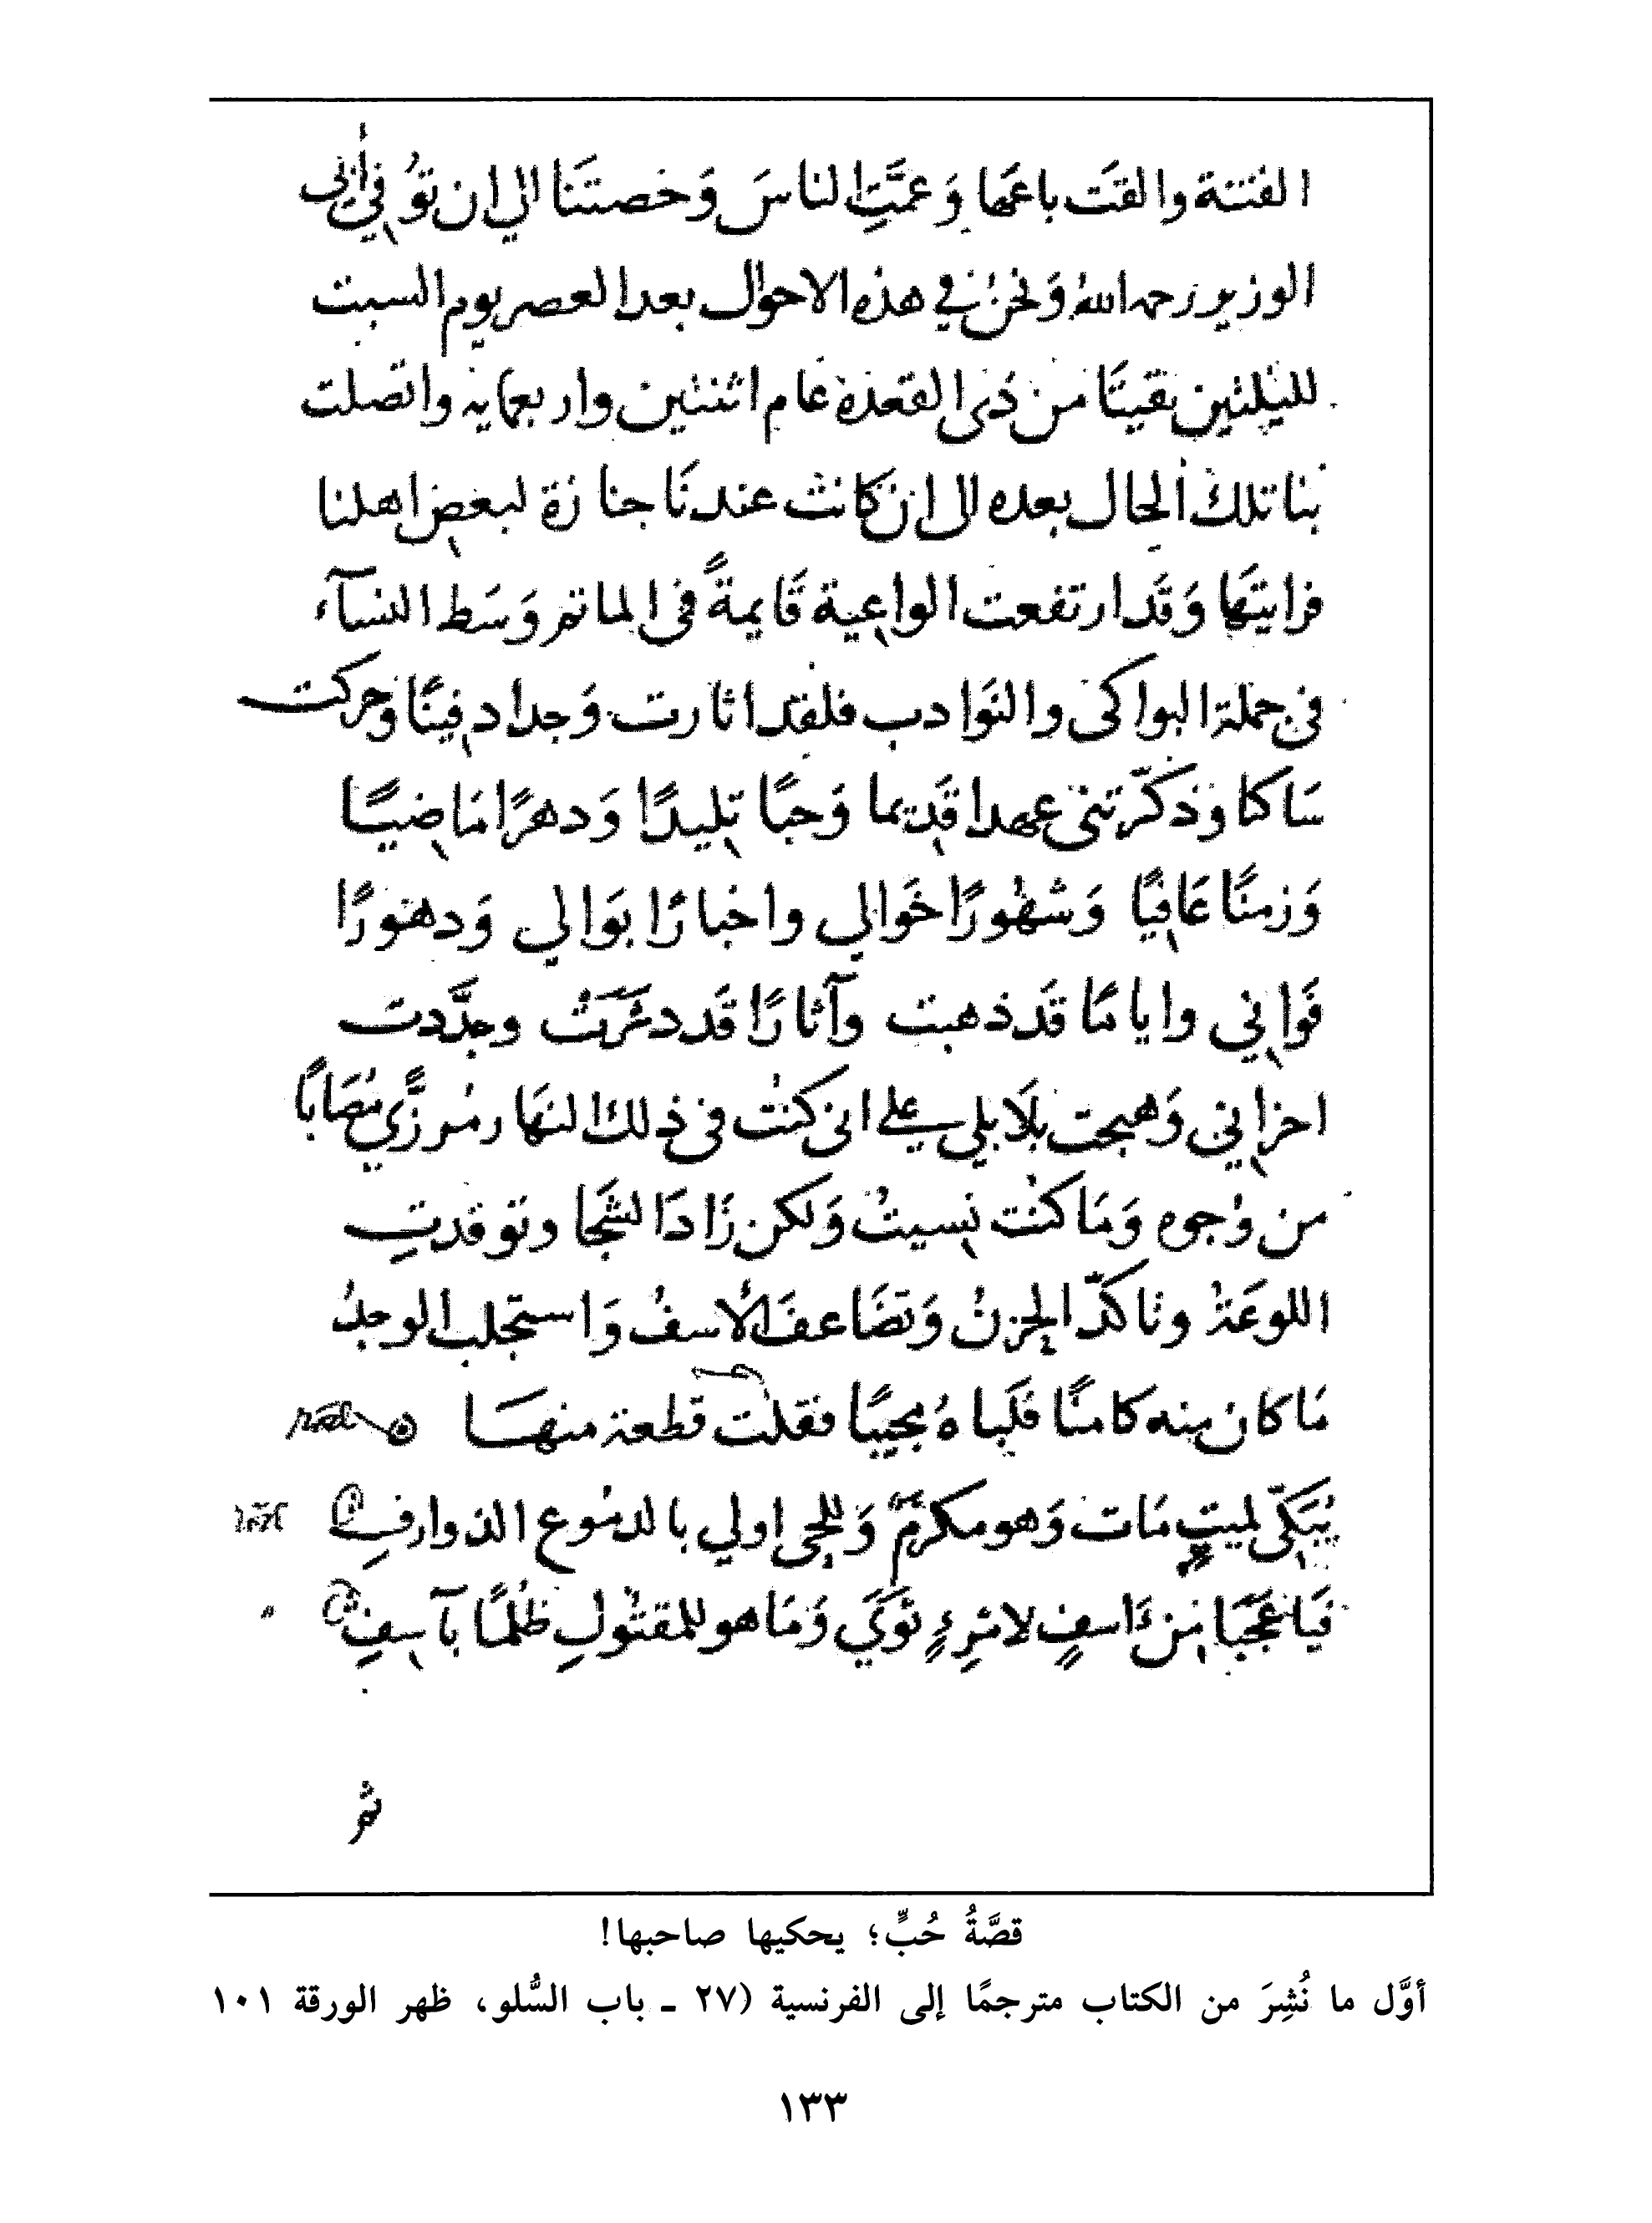 الفتنة والقت باعها وَعمَّتِ الناسَ وَخصتَنا الي ان توُفي ابى
الوزير رحمه اللهُ وَنحنُ في هذه الاحوال بعد العصر يوم السبت
لليلتين بقيتَا من ذى القعدة عام اثنتين واربعمايه واتصلت
بنا تلك الحال بعده الى ان كانت عندنَا جنازة لبعض اهلنا
فرايتَها وَقَد ارتفعت الواعية قَايمةً فى الماتم وَسَط النسآء
فى جملة البواكى والنوَادب فلقد اثارت وَجدا دفينًا وَحركت
سَاكنا وذكّرتنى عهدا قَديما وَحبًا تليدًا وَدهرًا مَاضيًا
وَزمنًا عَافيًا وَشهُورًا خَوالي واخبارًا بوَالي وَدهورًا
فَواني واياما قَد ذهبت وآثارًا قَد دثَرَتْ وجدَّدت
احزاني وَهيجت بلَابلي علي انى كنتُ فى ذلك النهَار مرزَّي مُصَابًا
من وُجوه وَمَا كنت نسيتُ وَلكن زَادَ الشجَا وتوقدتِ
اللوعَةُ وتاكدّ الحزنُ وَتضَاعفَ الأسفُ وَاستجلب الوجدُ
مَا كان منه كامنًا فلَباهُ مجيبًا فقلت قطعة منهَا
يُبَكّى لميتٍ مَات وَهو مكرمٌ وَللحى اولي بالدمُوع الذوارفِ
فيَا عَجَبَا من ءَاسفٍ لامْرِءٍ ثوَي وَمَا هو للمقتُولِ ظُلمًا بآسِفِ
ثم
قصَّةُ حُبٍّ؛ يحكيها صاحبها!
أوَّل ما نُشِرَ من الكتاب مترجمًا إلى الفرنسية (٢٧ ـ باب السُّلو، ظهر الورقة ١٠١
١٣٣